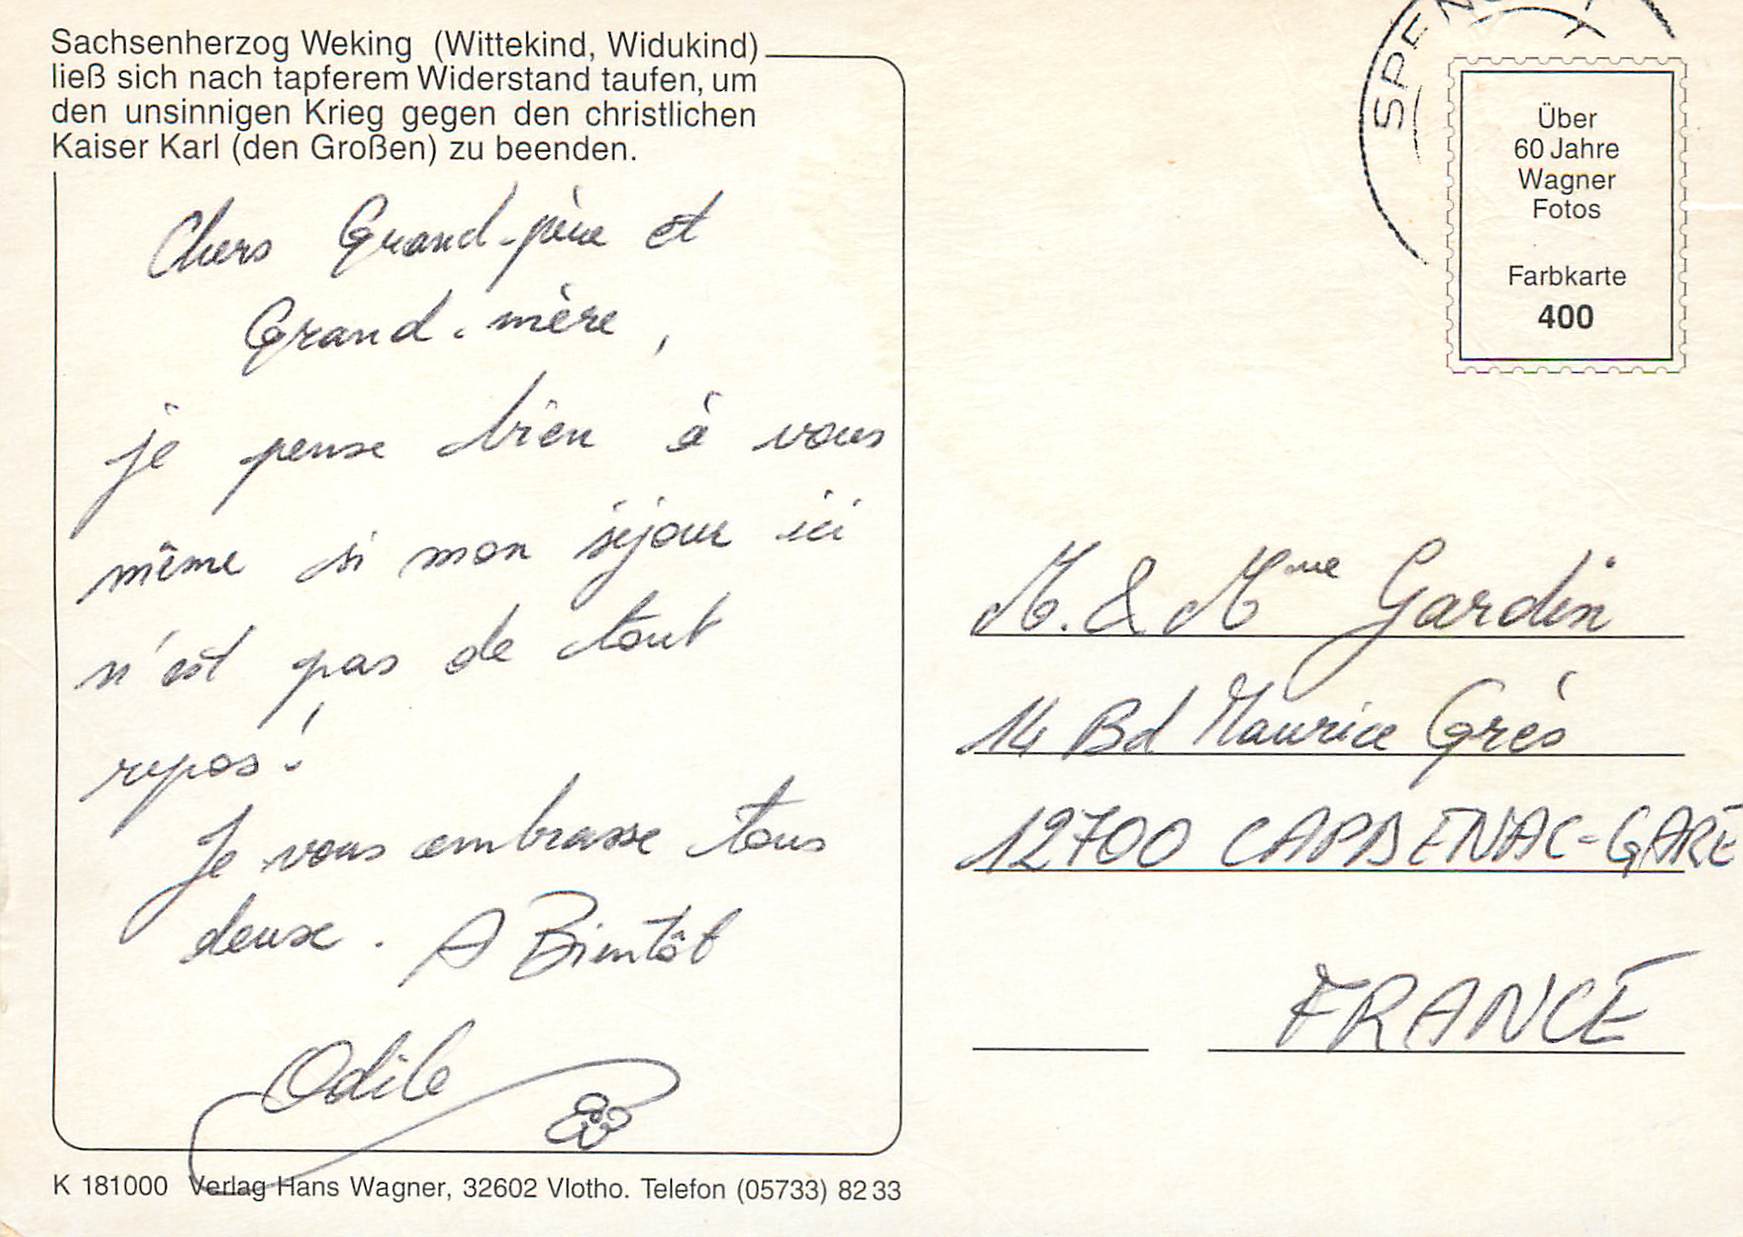 Sachsenherzog Weking (Wittekind, Widukind)
ließ sich nach tapferem Widerstand taufen, um
den unsinnigen Krieg gegen den christlichen
Kaiser Karl (den Großen) zu beenden.
Chers Grand-père et
Grand-mère,
je pense bien à vous
même si mon séjour ici
n'est pas de tout
repos!
Je vous embrasse tous
deux. A Bientôt
Odile
K 181000 Verlag Hans Wagner, 32602 Vlotho. Telefon (05733) 82 33
SPEN
Über
60 Jahre
Wagner
Fotos
Farbkarte
400
M. & Mme Gardin
14 Bd Maurice Grès
12700 CAPDENAC-GARE
FRANCE